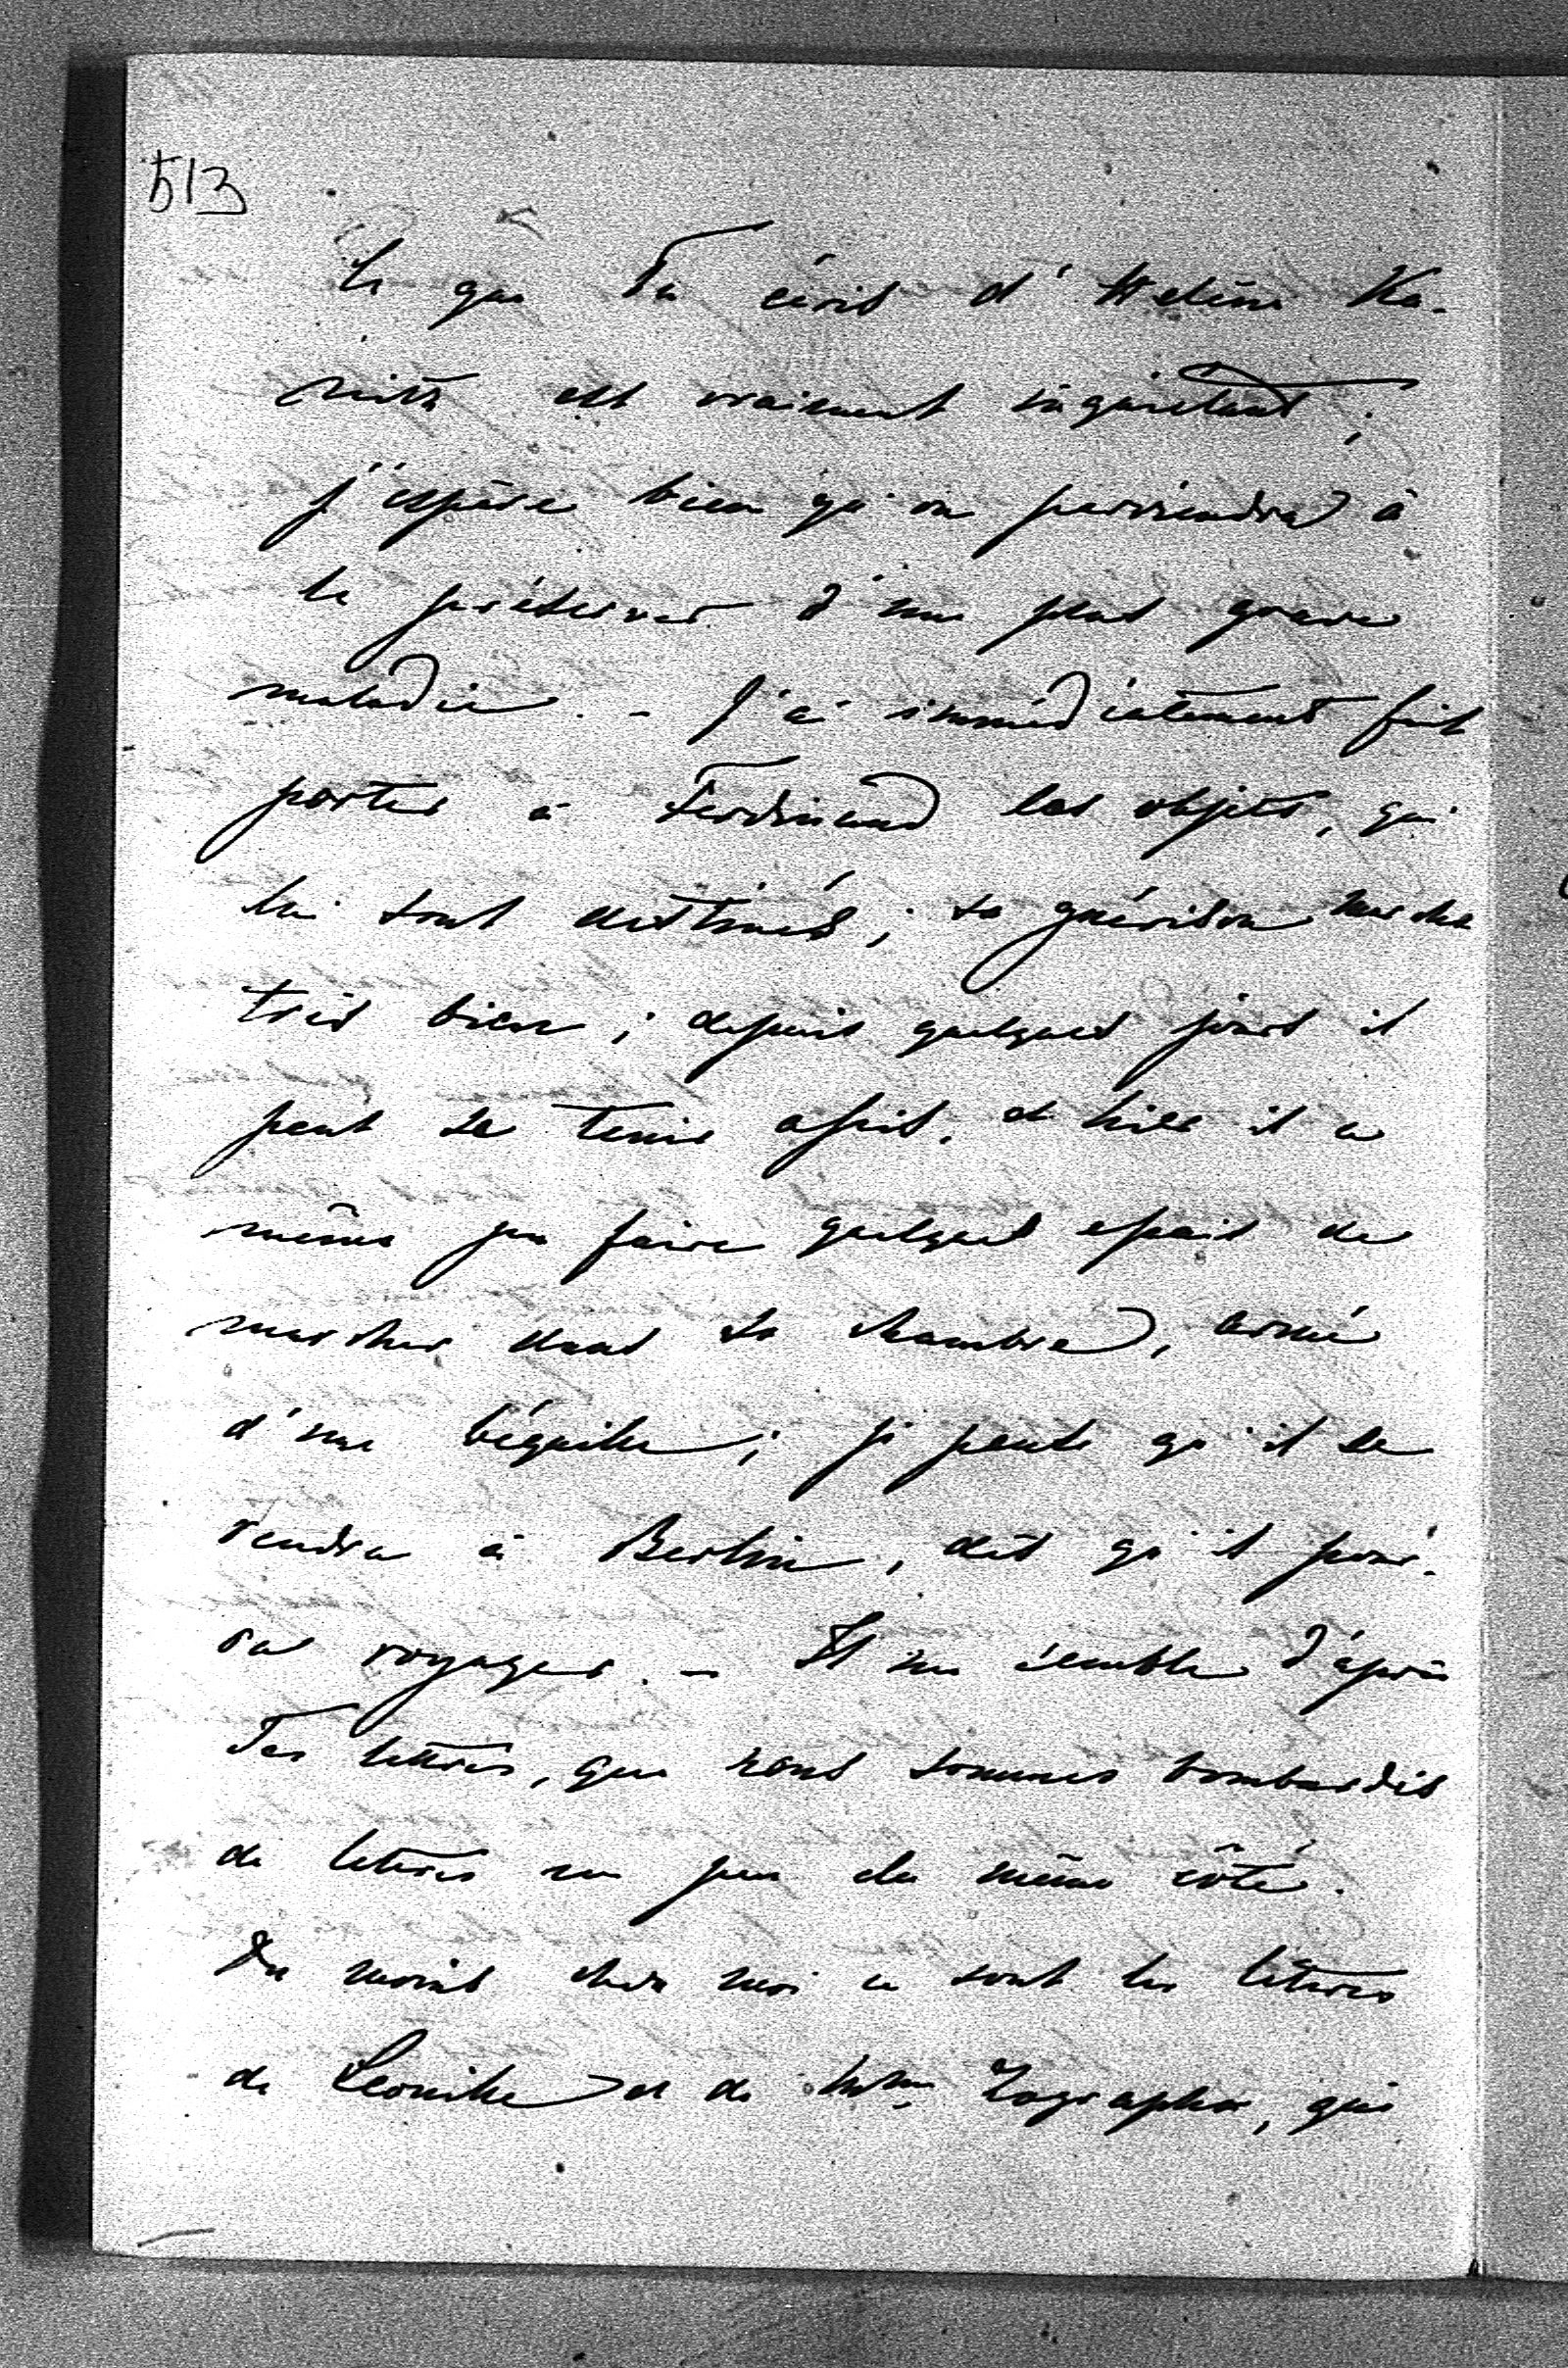 513
Ce que Tu écris d'Helène Ka-
nitz est vraiment inquietant;
j'éspère bien qu'on parviendra à
la préserver d'une plus grave
maladie. – J'ai immédiatement fait
porter à Ferdinand les objets, qui
lui sont destinés; sa guérison marche
très bien; depuis quelques jours il
peut se tenir assis, et hier il a
même pu faire quelques essais de
marcher dans sa chambre, armé
d'une béquille; je pense qu'il se
rendra à Berlin, dès qu'il pour-
ra voyager. – Il me semble d'après
Tes lettres, que nous sommes bombardés
de lettres un peu du même côté.
Du moins chez moi ce sont les lettres
de Leonille et de Mme Zographos, qui